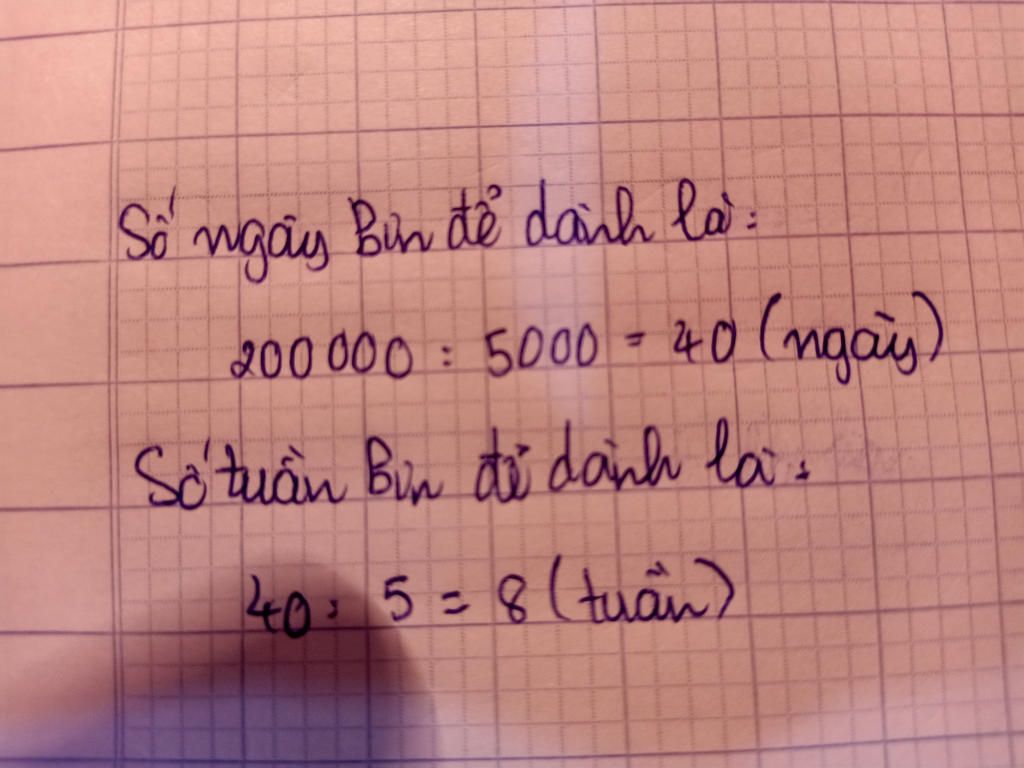 Số ngày Bin để dành là:
200000 : 5000 = 40 (ngày)
Số tuần Bin để dành là:
40 : 5 = 8 (tuần)